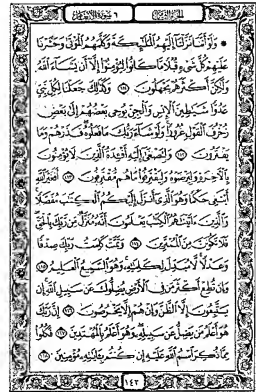 الجزء الثامن ٦ سورة الأنعام
۞ وَلَوْ أَنَّنَا نَزَّلْنَآ إِلَيْهِمُ ٱلْمَلَٰٓئِكَةَ وَكَلَّمَهُمُ ٱلْمَوْتَىٰ وَحَشَرْنَا
عَلَيْهِمْ كُلَّ شَىْءٍ قُبُلًا مَّا كَانُوا۟ لِيُؤْمِنُوٓا۟ إِلَّآ أَن يَشَآءَ ٱللَّهُ
وَلَٰكِنَّ أَكْثَرَهُمْ يَجْهَلُونَ ١١١ وَكَذَٰلِكَ جَعَلْنَا لِكُلِّ نَبِىٍّ
عَدُوًّا شَيَٰطِينَ ٱلْإِنسِ وَٱلْجِنِّ يُوحِى بَعْضُهُمْ إِلَىٰ بَعْضٍ
زُخْرُفَ ٱلْقَوْلِ غُرُورًا وَلَوْ شَآءَ رَبُّكَ مَا فَعَلُوهُ فَذَرْهُمْ وَمَا
يَفْتَرُونَ ١١٢ وَلِتَصْغَىٰٓ إِلَيْهِ أَفْـِٔدَةُ ٱلَّذِينَ لَا يُؤْمِنُونَ
بِٱلْـَٔاخِرَةِ وَلِيَرْضَوْهُ وَلِيَقْتَرِفُوا۟ مَا هُم مُّقْتَرِفُونَ ١١٣ أَفَغَيْرَ ٱللَّهِ
أَبْتَغِى حَكَمًا وَهُوَ ٱلَّذِىٓ أَنزَلَ إِلَيْكُمُ ٱلْكِتَٰبَ مُفَصَّلًا
وَٱلَّذِينَ ءَاتَيْنَٰهُمُ ٱلْكِتَٰبَ يَعْلَمُونَ أَنَّهُۥ مُنَزَّلٌ مِّن رَّبِّكَ بِٱلْحَقِّ
فَلَا تَكُونَنَّ مِنَ ٱلْمُمْتَرِينَ ١١٤ وَتَمَّتْ كَلِمَتُ رَبِّكَ صِدْقًا
وَعَدْلًا لَّا مُبَدِّلَ لِكَلِمَٰتِهِۦ وَهُوَ ٱلسَّمِيعُ ٱلْعَلِيمُ ١١٥
وَإِن تُطِعْ أَكْثَرَ مَن فِى ٱلْأَرْضِ يُضِلُّوكَ عَن سَبِيلِ ٱللَّهِ إِن
يَتَّبِعُونَ إِلَّا ٱلظَّنَّ وَإِنْ هُمْ إِلَّا يَخْرُصُونَ ١١٦ إِنَّ رَبَّكَ
هُوَ أَعْلَمُ مَن يَضِلُّ عَن سَبِيلِهِۦ وَهُوَ أَعْلَمُ بِٱلْمُهْتَدِينَ ١١٧ فَكُلُوا۟
مِمَّا ذُكِرَ ٱسْمُ ٱللَّهِ عَلَيْهِ إِن كُنتُم بِـَٔايَٰتِهِۦ مُؤْمِنِينَ ١١٨
١٤٢